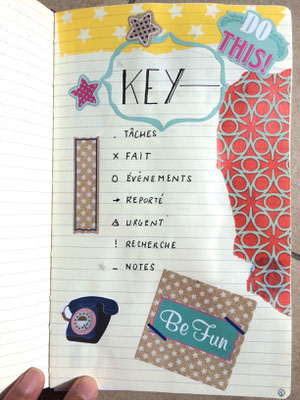 DO
THIS!
KEY
. TÂCHES
x FAIT
O ÉVÉNEMENTS
→ REPORTÉ
△ URGENT
! RECHERCHE
– NOTES
Be Fun